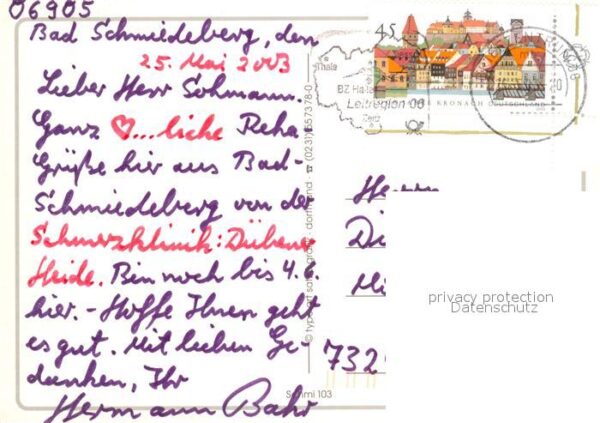 06905
Bad Schmiedeberg, den
25. Mai 2003
Lieber Herr Sohmann.
Ganz ♡...liche Reha
Grüße hier aus Bad-
Schmiedeberg von der
Schmerzklinik: Dübener
Heide. Bin noch bis 4.6.
hier. - Hoffe Ihnen geht
es gut. Mit lieben Ge-
danken, Ihr
Hermann Bahr
45
KRONACH DEUTSCHLAND
Thale
BZ Halle
Leitregion 06
Zeitz
dortmund · ☎ (0231)
Schmi 103
He
Di
732
privacy protection
Datenschutz